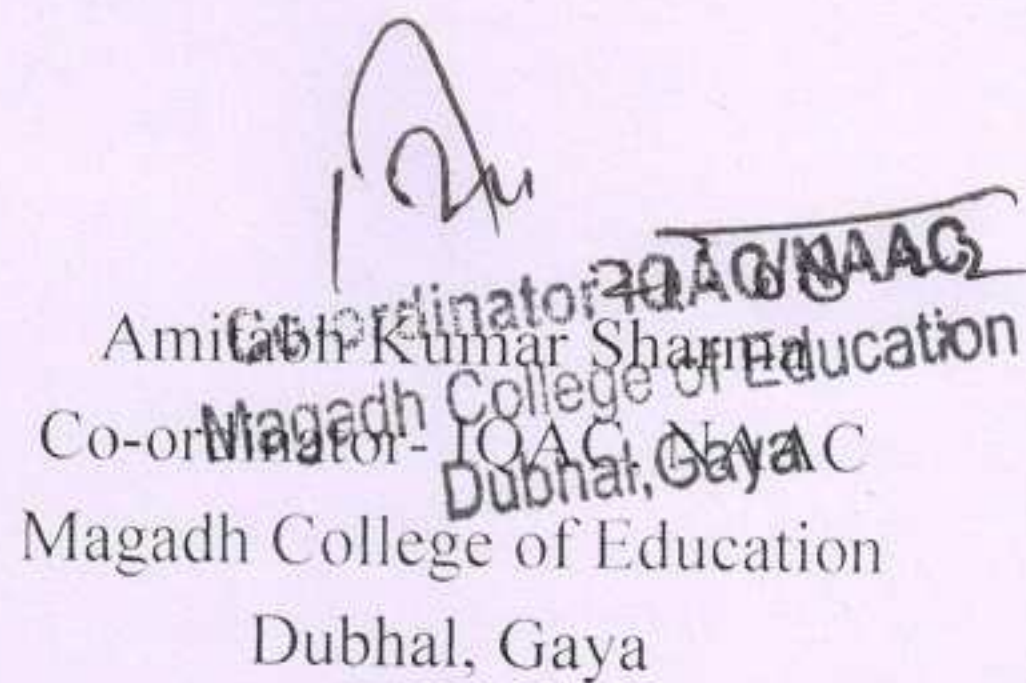 Co-ordinator-IQAC/NAAC
Magadh College of Education
Dubhal, Gaya
Amitabh Kumar Sharma
Co-ordinator- IQAC, NAAC
Magadh College of Education
Dubhal, Gaya